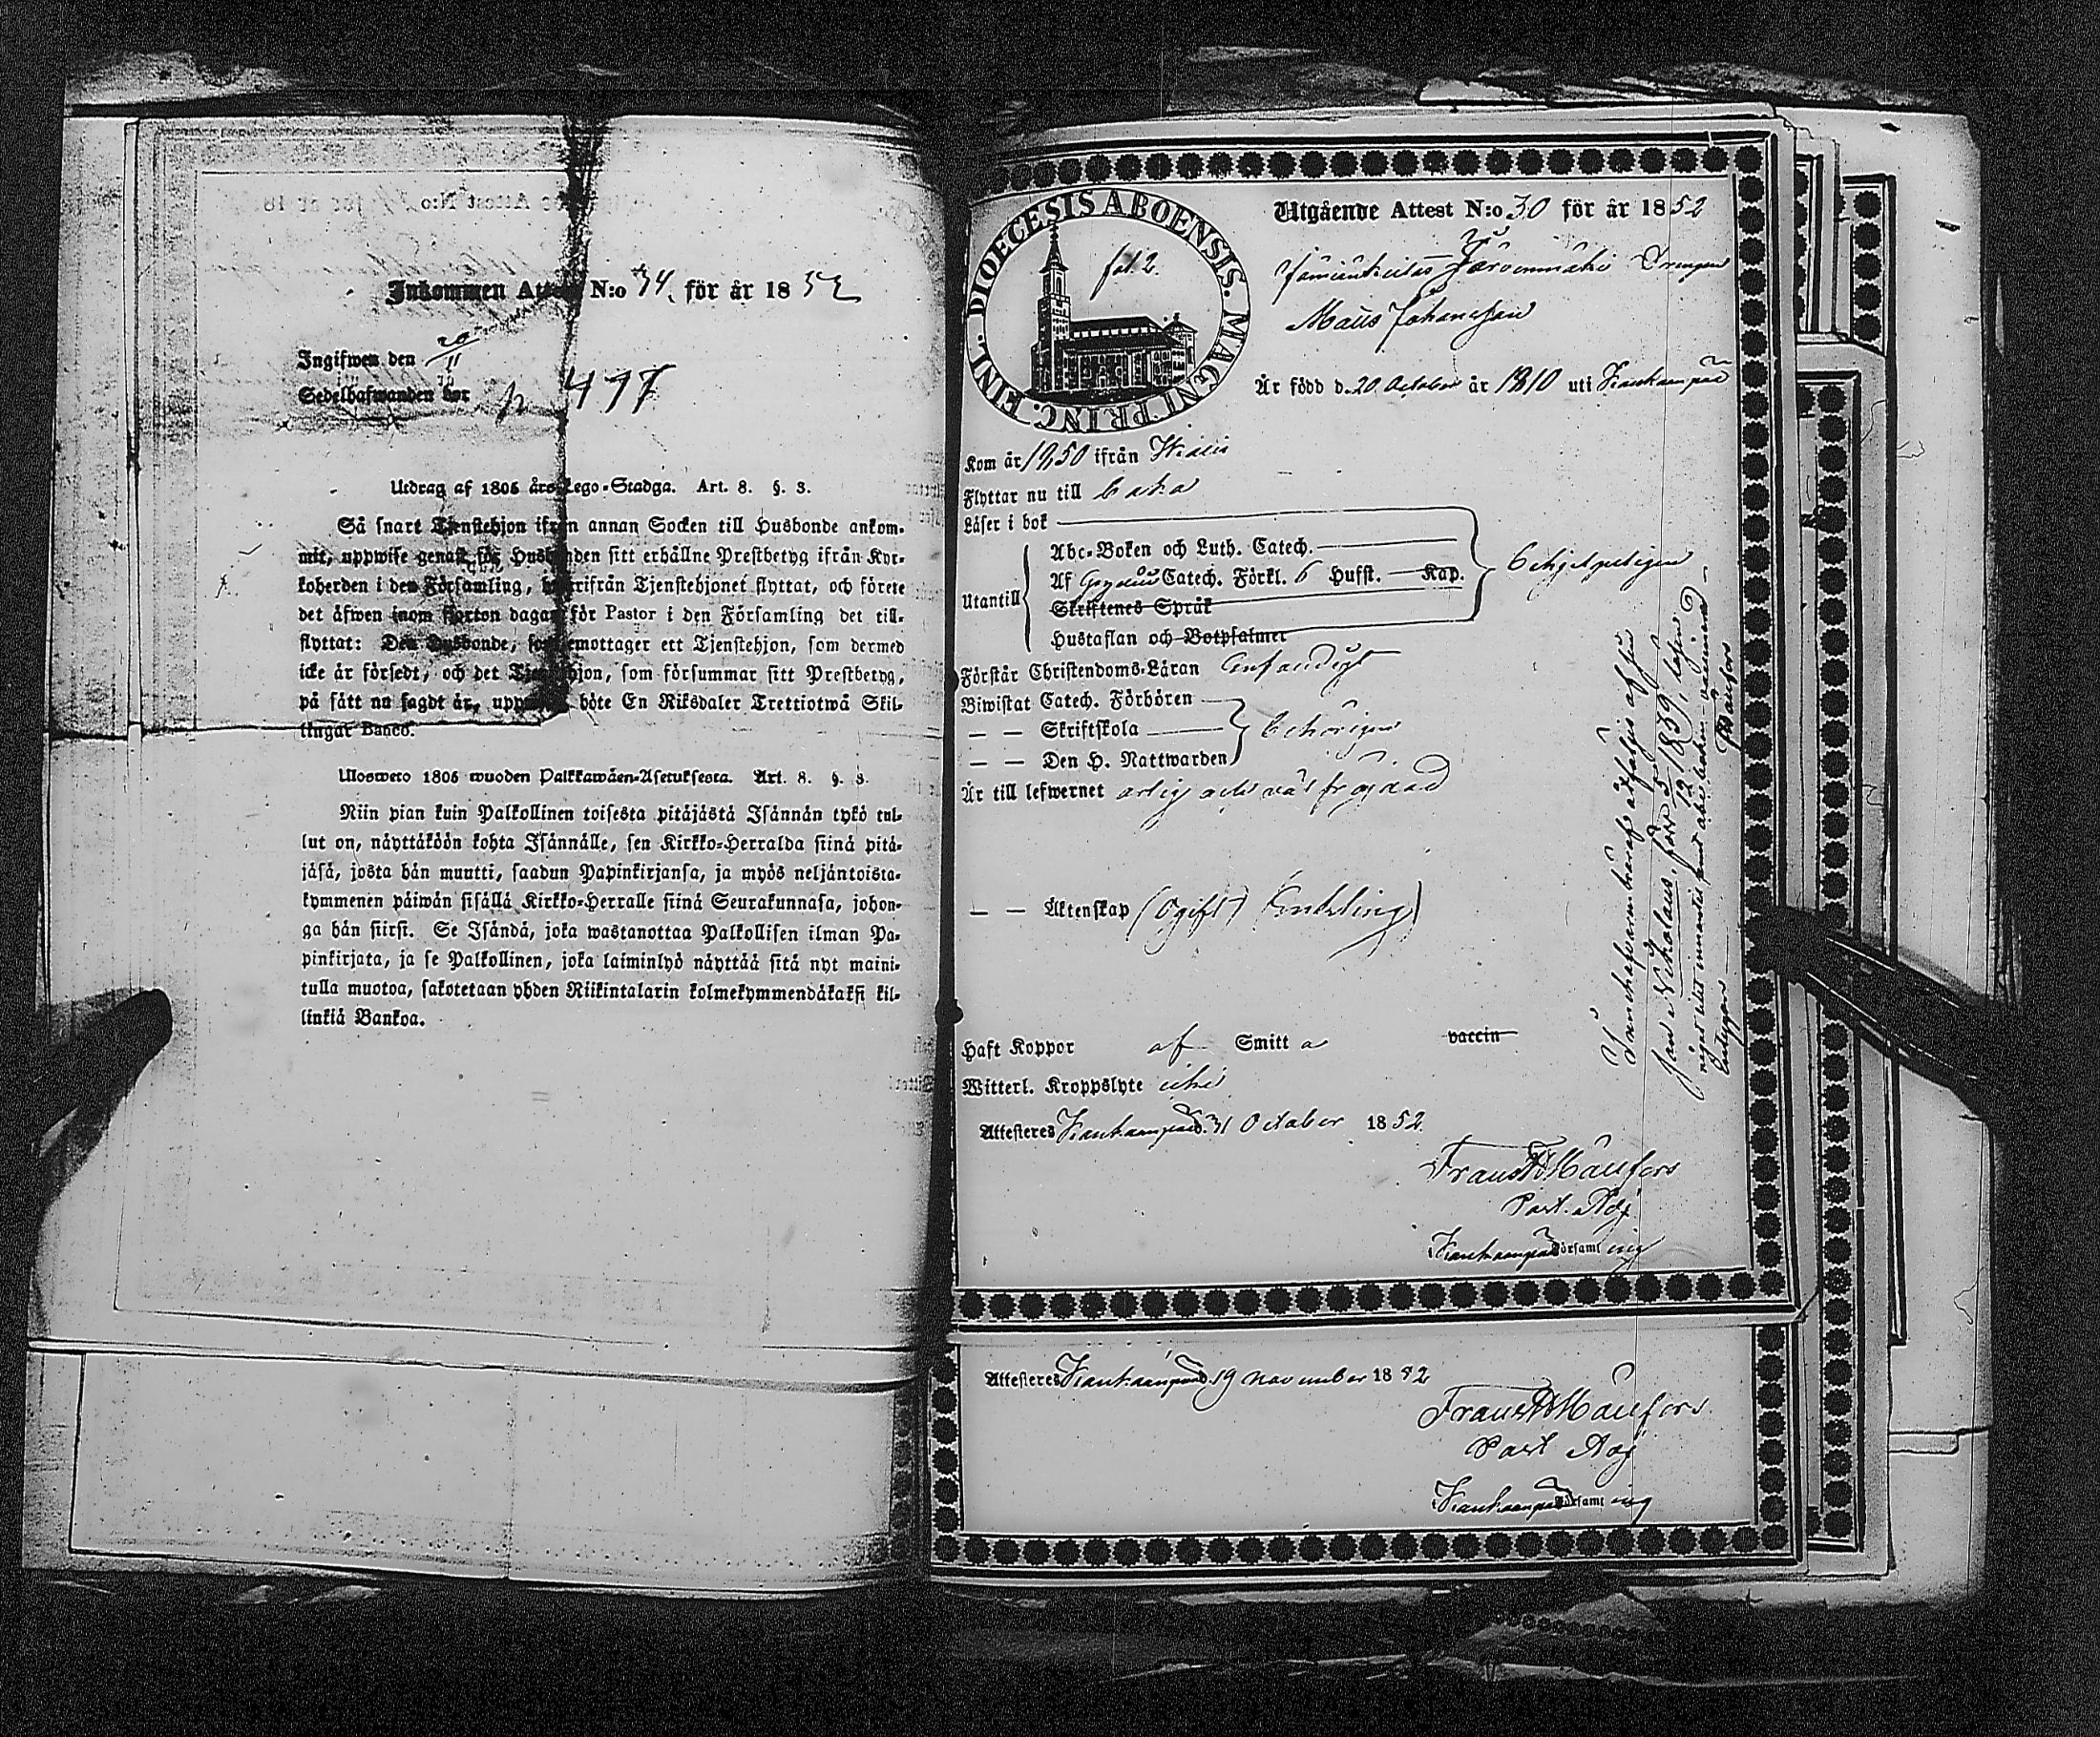 Inkommen Attest N:o 34. för år 1852
Ingifwen den 20/11
Sedelhafwanden bor p 477
Utdrag af 1805 års Lego-Stadga. Art. 8. §. 3.
Så snart Tjenstehjon ifrån annan Socken till Husbonde ankom-
mit, uppwise genast för Husbonden sitt erhållne Prestbetyg ifrån Kyr-
koherden i den Församling, hwarifrån Tjenstehjonet flyttat, och förete
det äfwen inom fjorton dagar för Pastor i den Församling det till-
flyttat: Den Husbonde, som emottager ett Tjenstehjon, som dermed
icke är försedt, och det Tjenstehjon, som försummar sitt Prestbetyg,
på sätt nu sagdt är, uppwisa böte En Riksdaler Trettiotwå Skil-
lingar Banco.
Ulosweto 1805 wuoden Palkkawäen-Asetuksesta. Art. 8. §. 3.
Niin pian kuin Palkollinen toisesta pitäjästä Isännän tykö tul-
lut on, näyttäköön kohta Isännälle, sen Kirkko-Herralda siinä pitä-
jäsä, josta hän muutti, saadun Papinkirjansa, ja myös neljäntoista-
kymmenen päiwän sisällä Kirkko-Herralle siinä Seurakunnasa, johon-
ga hän siirsi. Se Isändä, joka wastanottaa Palkollisen ilman Pa-
pinkirjata, ja se Palkollinen, joka laiminlyö näyttää sitä nyt maini-
tulla muotoa, sakotetaan yhden Riikintalarin kolmekymmendäkaksi kil-
linkiä Bankoa.
DIOECESIS ABOENSIS. MAGNI PRINC. FINL.
fol. 2.
Utgående Attest N:o 30 för år 1852
Järvenmäki Drengen
Matts Johansson
Är född d. 20 October år 1810 uti Kankaanpää
Kom år 1850 ifrån
Flyttar nu till baka
Läser i bok
Utantill
Abc-Boken och Luth. Catech.
Af Catech. Förkl. 6 Hufst. Kap.
Skriftenes Språk
Hustaflan och Botpsalmer
Förstår Christendoms-Läran enfaldigt
Biwistat Catech. Förhören
— — Skriftskola
— — Den H. Nattwarden
behörigen
Är till lefwernet ärlig och väl frägdad
— — Äktenskap (Ogift) Enkling)
Haft Koppor af Smitta vaccin
Witterl. Kroppslyte icke
Attesteres Kankaanpää d. 31 October 1852
Past. Adj.
Kankaanpää Församling
Son Nikolaus, född 1839,
Attesteres Kankaanpää d. 19 november 1852
Past Adj
Kankaanpää Församling